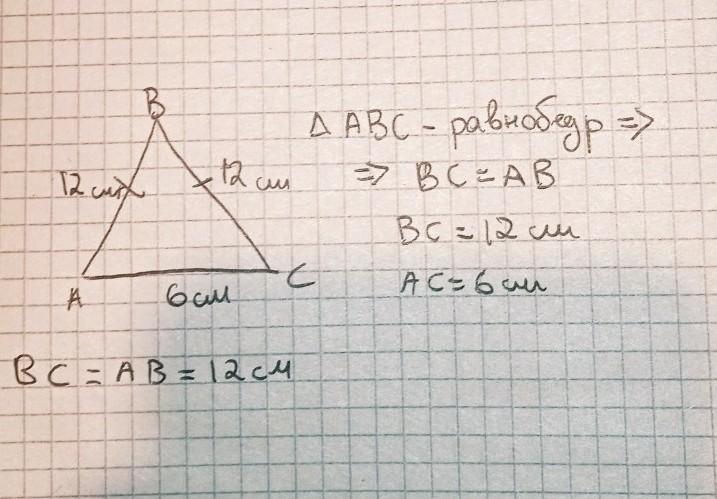 B
Δ ABC - равнобедр =>
12 см 12 см => BC = AB
BC = 12 см
A 6 см C AC = 6 см
BC = AB = 12 см